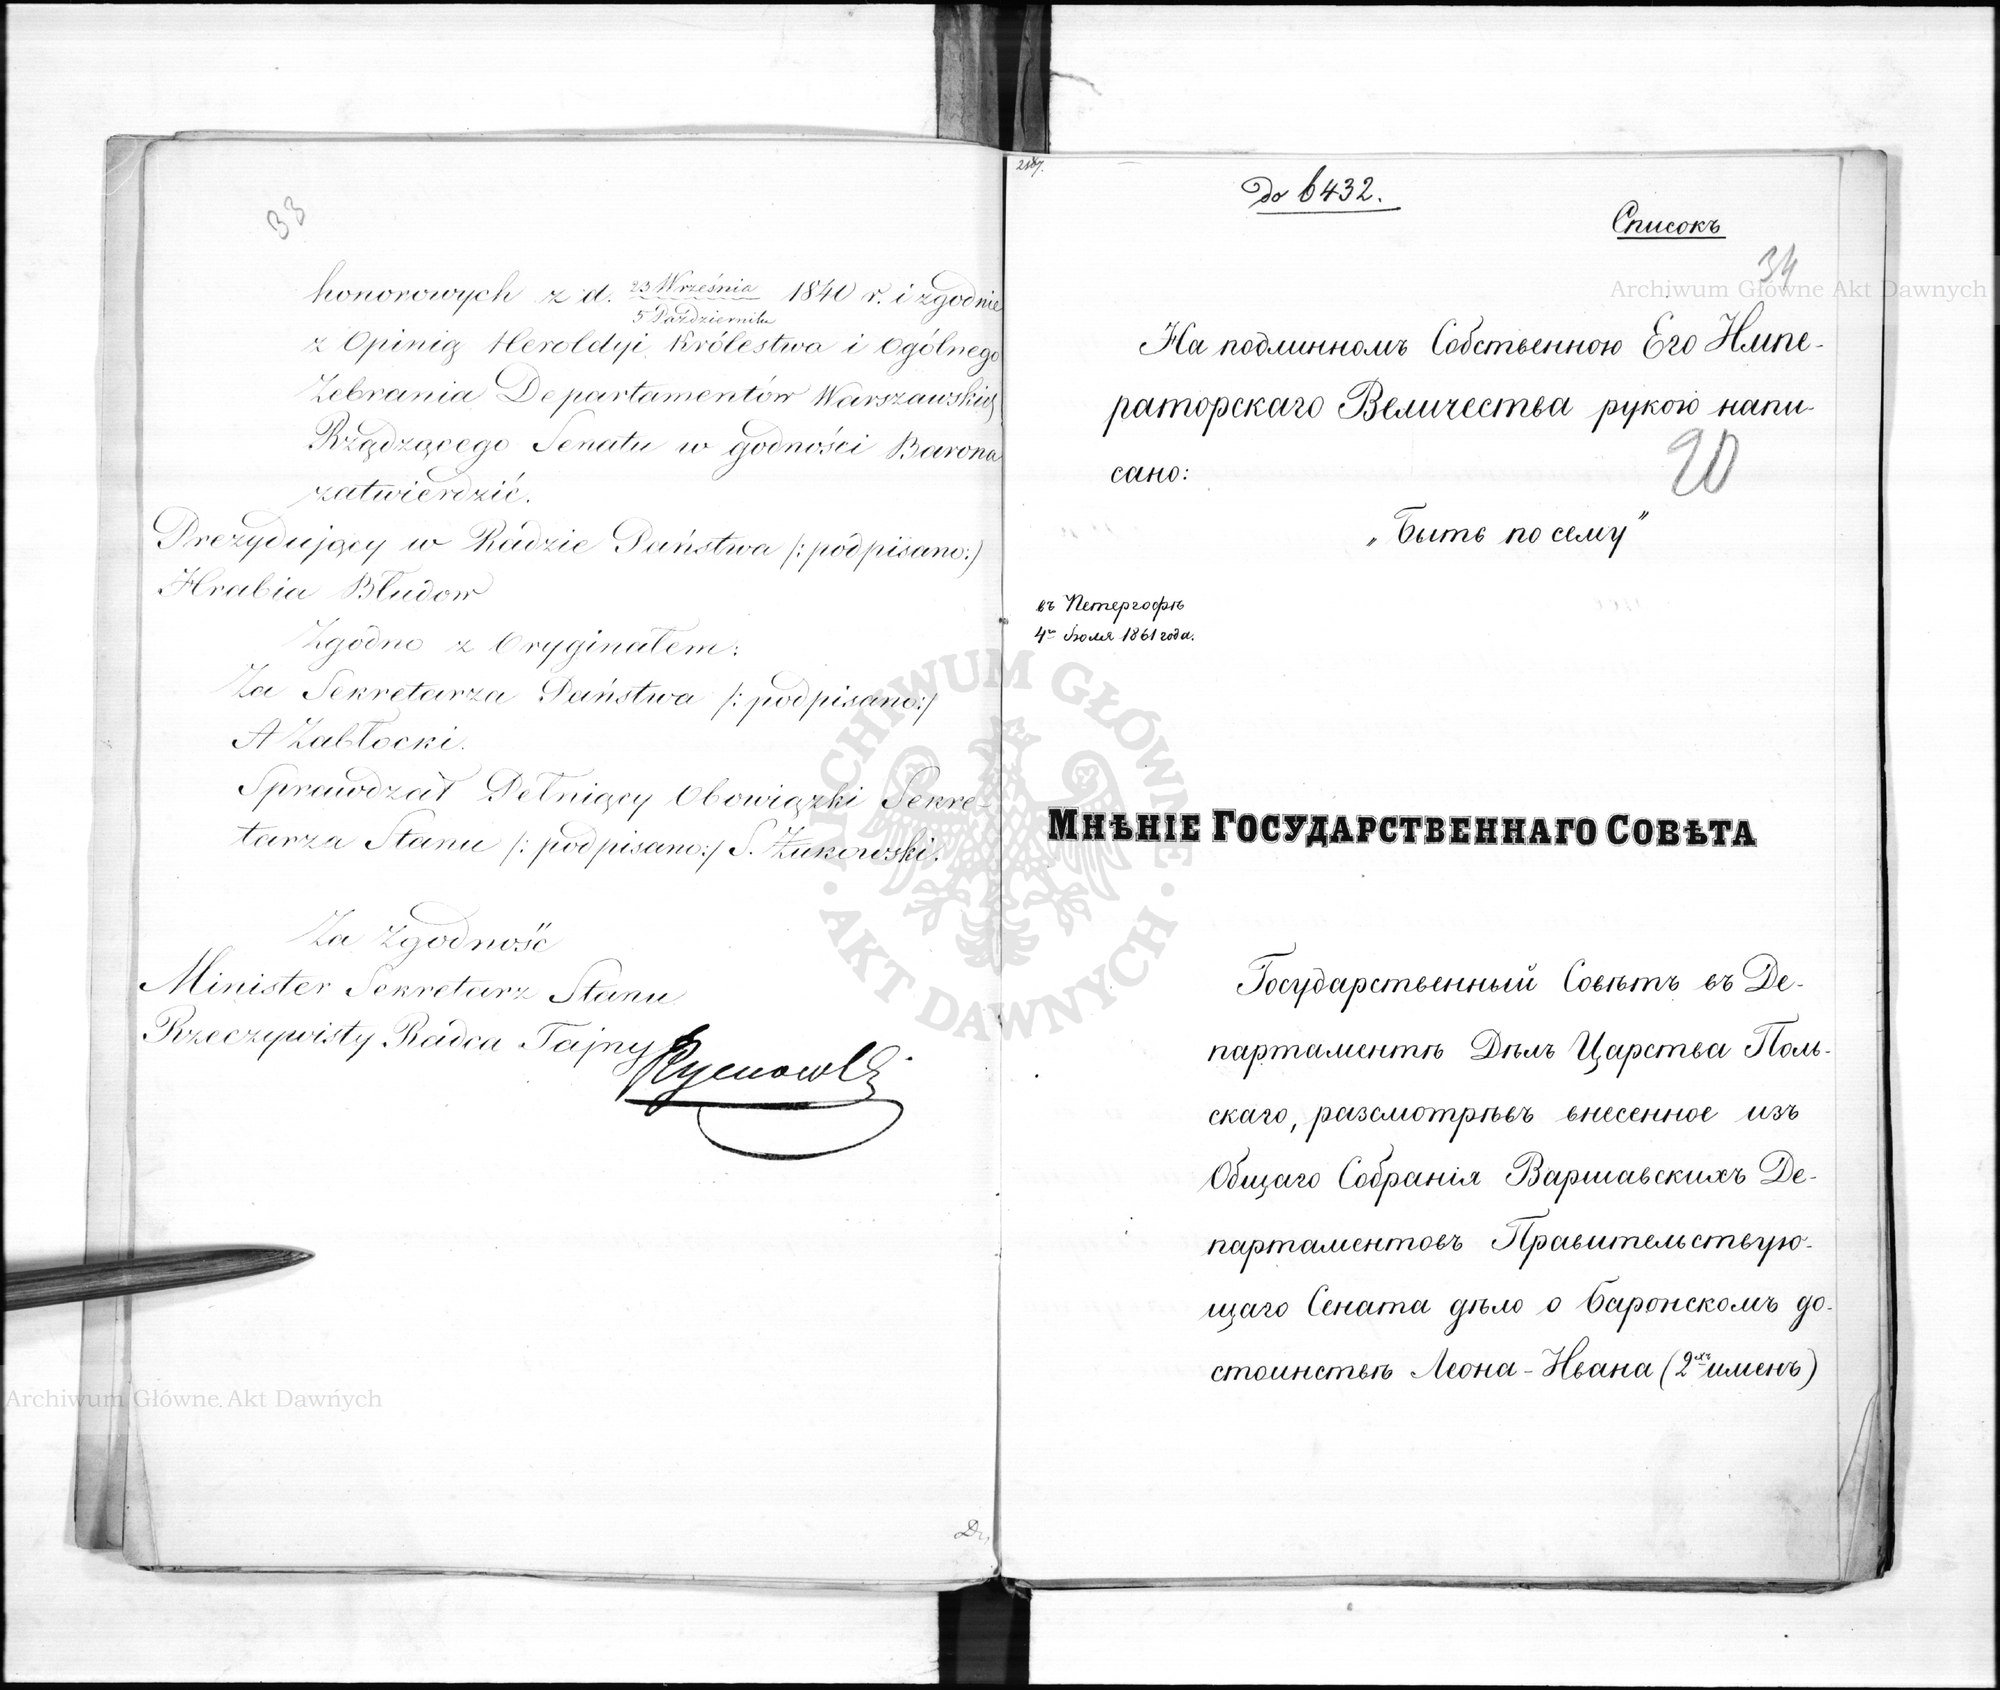 33
honorowych z d. 23 Września 1840 r. i zgodnie
5 Października
z Opinią Heroldyi Królestwa i Ogólnego
Zebrania Departamentów Warszawskich
Rządzącego Senatu w godności Barona
zatwierdzić.
Prezydujący w Radzie Państwa /: podpisano:/
Hrabia Błudow
Zgodno z Oryginałem:
Za Sekretarza Państwa /: podpisano:/
A Zabłocki.
Sprawdzał Pełniący Obowiązki Sekre-
tarza Stanu /: podpisano:/ S. Żukowski.
Za Zgodność
Minister Sekretarz Stanu
Rzeczywisty Radca Tajny
до 6432.
Списокъ
34
На подлинномъ Собственною Его Импе-
раторскаго Величества рукою напи-
сано:
20
„Быть по сему"
въ Петергофѣ
4го Іюля 1861 года.
Мнѣніе Государственнаго Совѣта
Государственный Совѣтъ въ Де-
партаментѣ Дѣлъ Царства Поль-
скаго, разсмотрѣвъ внесенное изъ
Общаго Собранія Варшавскихъ Де-
партаментовъ Правительствую-
щаго Сената дѣло о баронскомъ до-
стоинствѣ Леона-Ивана (2хъ именъ)
Archiwum Główne Akt Dawnych
ARCHIWUM GŁÓWNE
AKT DAWNYCH
Archiwum Główne Akt Dawnych